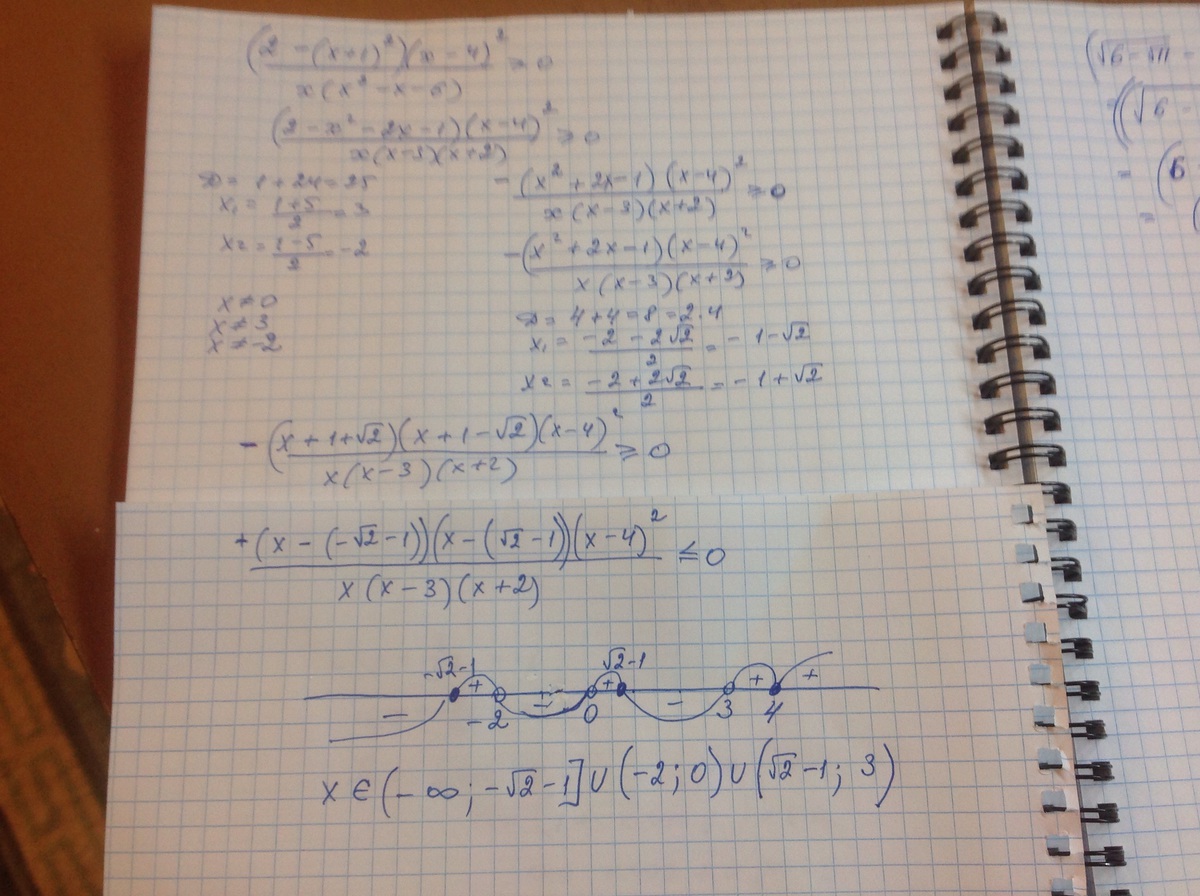 (2 - (x+1)²)(x - 4)² / x(x² - x - 6) ≥ 0
(2 - x² - 2x - 1)(x - 4)² / x(x-3)(x+2) ≥ 0
D = 1 + 24 = 25
x₁ = (1+5)/2 = 3
x₂ = (1-5)/2 = -2
x ≠ 0
x ≠ 3
x ≠ -2
- (x² + 2x - 1)(x - 4)² / x(x-3)(x+2) ≥ 0
- (x² + 2x - 1)(x - 4)² / x(x-3)(x+2) ≥ 0
D = 4 + 4 = 8 = 2·4
x₁ = (-2 - 2√2)/2 = -1 - √2
x₂ = (-2 + 2√2)/2 = -1 + √2
- (x + 1 + √2)(x + 1 - √2)(x - 4)² / x(x-3)(x+2) ≥ 0
+ (x - (-√2 - 1))(x - (√2 - 1))(x - 4)² / x(x-3)(x+2) ≤ 0
-√2-1 √2-1
- + - + - + +
-2 0 3 4
x ∈ (-∞; -√2-1] ∪ (-2; 0) ∪ (√2-1; 3)
(√6 - √11 -
((√6 -
= (6
= (